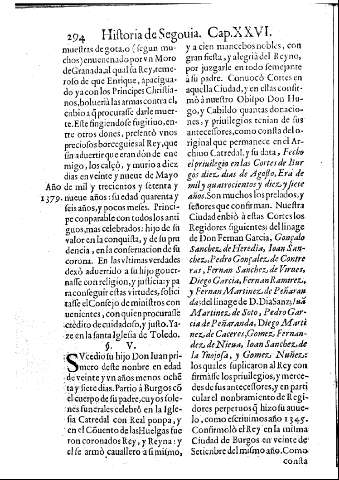 294 Historia de Segouia. Cap. XXVI.
muestras de gota, o (segun mu-
chos) enuenenado por vn Moro
de Granada, al qual su Rey, teme-
roso de que Enrique, apacigua-
do ya con los Principes Christia-
nos, bolueria las armas contra el,
enbio a q̃ procurasse darle muer-
te. Este fingiendose fugitiuo, en-
tre otros dones, presentò vnos
preciosos borceguies al Rey, que
sin aduertir que eran dòn de ene-
migo, los calçò, y murio a diez
dias en veinte y nueue de Mayo
Año de mil y trecientos y setenta y
1379. nueue años: su edad quarenta y
seis años, y pocos meses. Princi-
pe conparable con todos los anti-
guos, mas celebrados: hijo de su
valor en la conquista, y de su pru
dencia, en la conseruacion de su
corona. En las vltimas verdades
dexò aduertido a su hijo gouer-
nasse con religion, y justicia; y pa
ra conseguir estas virtudes, solici
tasse el Consejo de ministros con
uenientes, con quien procurasse
credito de cuidadoso, y justo. Ya-
ze en la santa Iglesia de Toledo.
§. V.
SVcedio su hijo Don Iuan pri-
mero deste nonbre en edad
de veinte y vn años menos ochẽ
ta y siete dias. Partio a Burgos cõ
el cuerpo de su padre, cuyos solen-
nes funerales celebrò en la Igle-
sia Catredal con Real ponpa, y
en el Cõuento de las Huelgas fue
ron coronados Rey, y Reyna: y
el se armò cauallero a si mismo,
y a cien mancebos nobles, con
gran fiesta, y alegria del Reyno,
por juzgarle en todo semejante
a su padre. Conuocò Cortes en
aquella Ciudad, y en ellas confir-
mò a nuestro Obispo Don Hu-
go, y Cabildo quantas donacio-
nes, y priuilegios tenian de sus
antecessores, como consta del o-
riginal que permanece en el Ar-
chiuo Catredal, y su data, Fecho
el priuilegio en las Cortes de Bur
gos diez dias de Agosto, Era de
mil y quatrocientos y diez y siete
años. Son muchos los prelados, y
señores que confirman. Nuestra
Ciudad enbiò a estas Cortes los
Regidores siguientes: del linage
de Don Fernan Garcia, Gonçalo
Sanchez de Heredia, Ioan San-
chez, Pedro Gonçalez de Contre
ras, Fernan Sanchez de Virues,
Diego Garcia, Fernan Ramirez,
y Fernan Martinez de Peñaran
da: del linage de D. Dia Sanz, Iuã
Martinez de Soto, Pedro Gar-
cia de Peñaranda, Diego Marti
nez de Caceres, Gomez Fernan-
dez de Nieua, Ioan Sanchez de
la Ynojosa, y Gomez Nuñez:
los quales suplicaron al Rey con
firmasse los priuilegios, y merce-
des de sus antecessores, y en parti
cular el nonbramiento de Regi-
dores perpetuos q̃ hizo su aue-
lo, como escriuimos año 1345.
Confirmolo el Rey en la misma
Ciudad de Burgos en veinte de
Setienbre del mismo año. Como
consta